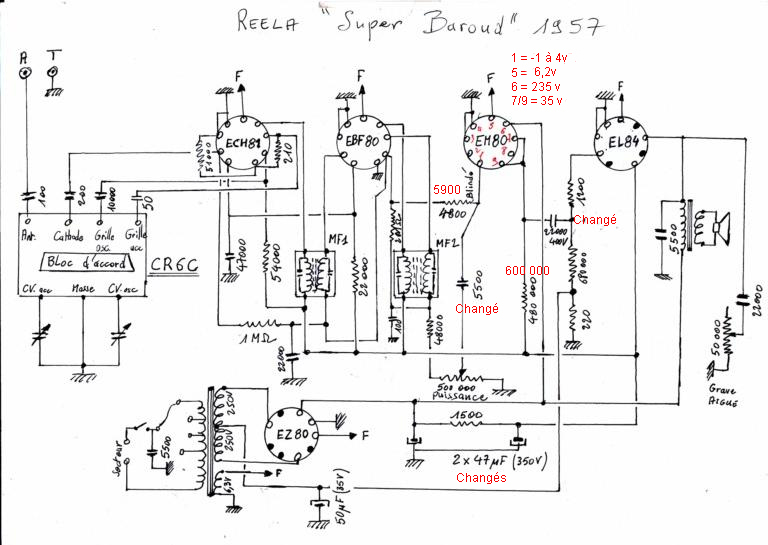 REELA "Super Baroud" 1957
1 = -1 à 4v
5 = 6,2v
6 = 235 v
7/9 = 35 v
A T
F F F F
ECH81 EBF80 EM80 EL84
51000 210
Blindé
5900
4800
1200
Changé
22000
400V
100 200 10000 50
Ant. Cathode Grille osc. Grille acc
Bloc d'accord CR6C
CV. acc Masse CV. osc
47000 54000 MF1 22000 MF2
5500
Changé
600 000
480 000
220
5500
22000
50 000
Grave
Aigué
1MΩ 22000 48000
500 000
Puissance
250V
250V
6,3V
EZ80 F
F
Secteur
5500
1500
2 x 47µF (350V)
Changés
50µF (35V)